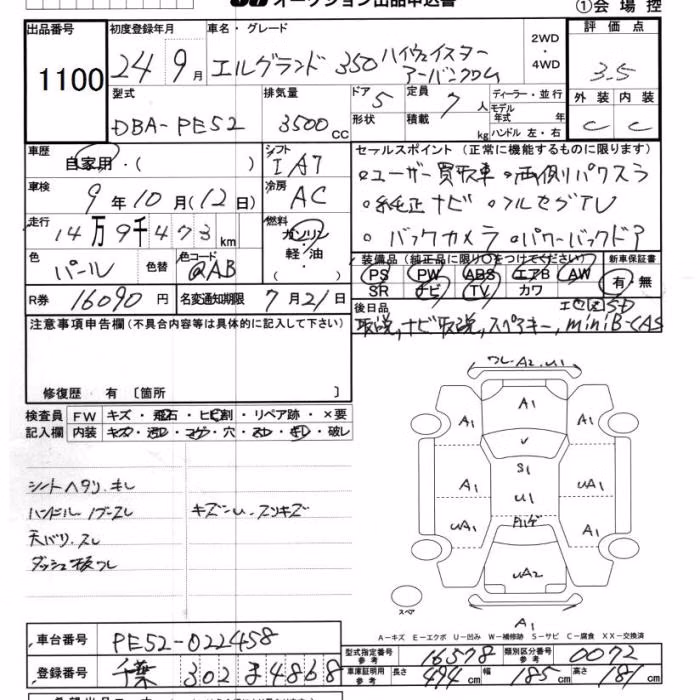 オークション出品申込書
①会場控
出品番号
1100
初度登録年月
24 9月
車名・グレード
エルグランド 350 ハイウェイスター
アーバンクロム
2WD・4WD
評価点
3.5
型式
DBA-PE52
排気量
3500cc
ドア 5
形状
定員 7人
積載 kg
ディーラー・並行
モデル年式 年式
ハンドル 左・右
外装 内装
C C
車歴
自家用・( )
シフト
IA7
セールスポイント(正常に機能するものに限ります)
車検
9年10月(12日)
冷房
AC
ユーザー買取車 両側パワスラ
純正ナビ フルセグTV
バックカメラ パワーバックドア
走行
14万9千473km
燃料
ガソリン・軽油・( )
色
パール
色替
色コード
QAB
装備品(純正品に限り○をつけてください)
PS PW ABS エアB AW
SR ナビ TV カワ
新車保証書
有・無
R券
16090円
名変通知期限
7月21日
後日品
取説,ナビ取説,スペアキー,miniB-CAS
注意事項申告欄(不具合内容等は具体的に記入して下さい)
修復歴 有 〔箇所 〕
検査員記入欄
FW キズ・飛石・ヒビ割・リペア跡・×要
内装 キズ・汚レ・コゲ・穴・スレ・キレ・破レ
シートヘタリ.キレ
ハンドル ノブスレ
天バリ.スレ
キズ
ワレ.A2.U1
A1
A1
A1
A1
S1
U1
UA1
UA1
A1
UA2
A1
スペア
A-キズ E-エクボ U-凹み W-補修跡 S-サビ C-腐食 XX-交換済
車台番号
PE52-022458
登録番号
千葉 302 ま 4868
型式指定番号 参考
16578
類別区分番号 参考
0072
車庫証明用 参考
長さ 494cm 幅 185cm 高さ 181cm